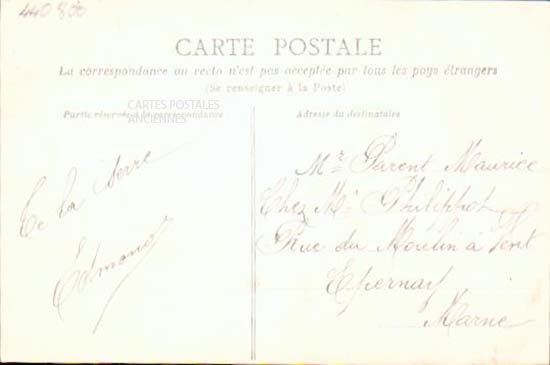 440 800
CARTE POSTALE
La correspondance au recto n'est pas acceptée par tous les pays étrangers
(Se renseigner à la Poste)
CARTES POSTALES
ANCIENNES
Partie réservée à la correspondance
Adresse du destinataire
Te la serre
Edmond
Mr Parent Maurice
Chez Mr Philippot
Rue du Moulin à Vent
Epernay
Marne